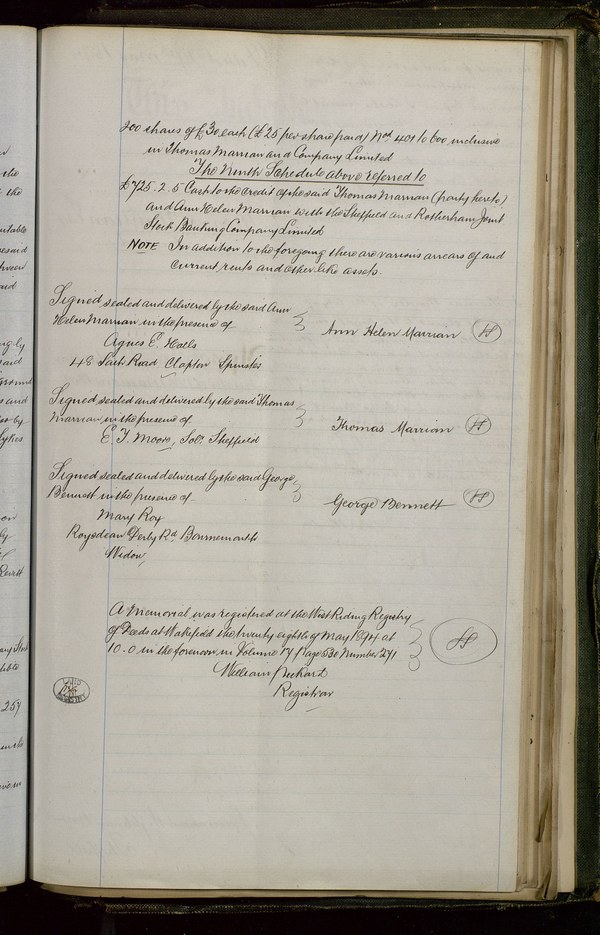 200 shares of £30 each (£25 per share paid) Nos 401 to 600 inclusive
in Thomas Marrian and Company Limited
The Ninth Schedule above referred to
£725.2.5 Cash to the credit of the said Thomas Marrian (party hereto)
and Ann Helen Marrian with the Sheffield and Rotherham Joint
Stock Banking Company Limited
NOTE In addition to the foregoing there are various arrears of and
current rents and other like assets.
Signed sealed and delivered by the said Ann
Helen Marrian in the presence of
Ann Helen Marrian
Agnes E.
Road Clapton Spinster
Signed sealed and delivered by the said Thomas
Marrian in the presence of
Thomas Marrian
E. T. Moore, Solr. Sheffield
Signed sealed and delivered by the said George
Bennett in the presence of
George Bennett
Mary Roy
Roysdean Derby Rd Bournemouth
Widow
A Memorial was registered at the West Riding Registry
of Deeds at Wakefield the twenty eighth of May 1894 at
10.0 in the forenoon in Volume 17 Page 530 Number 271
William
Registrar